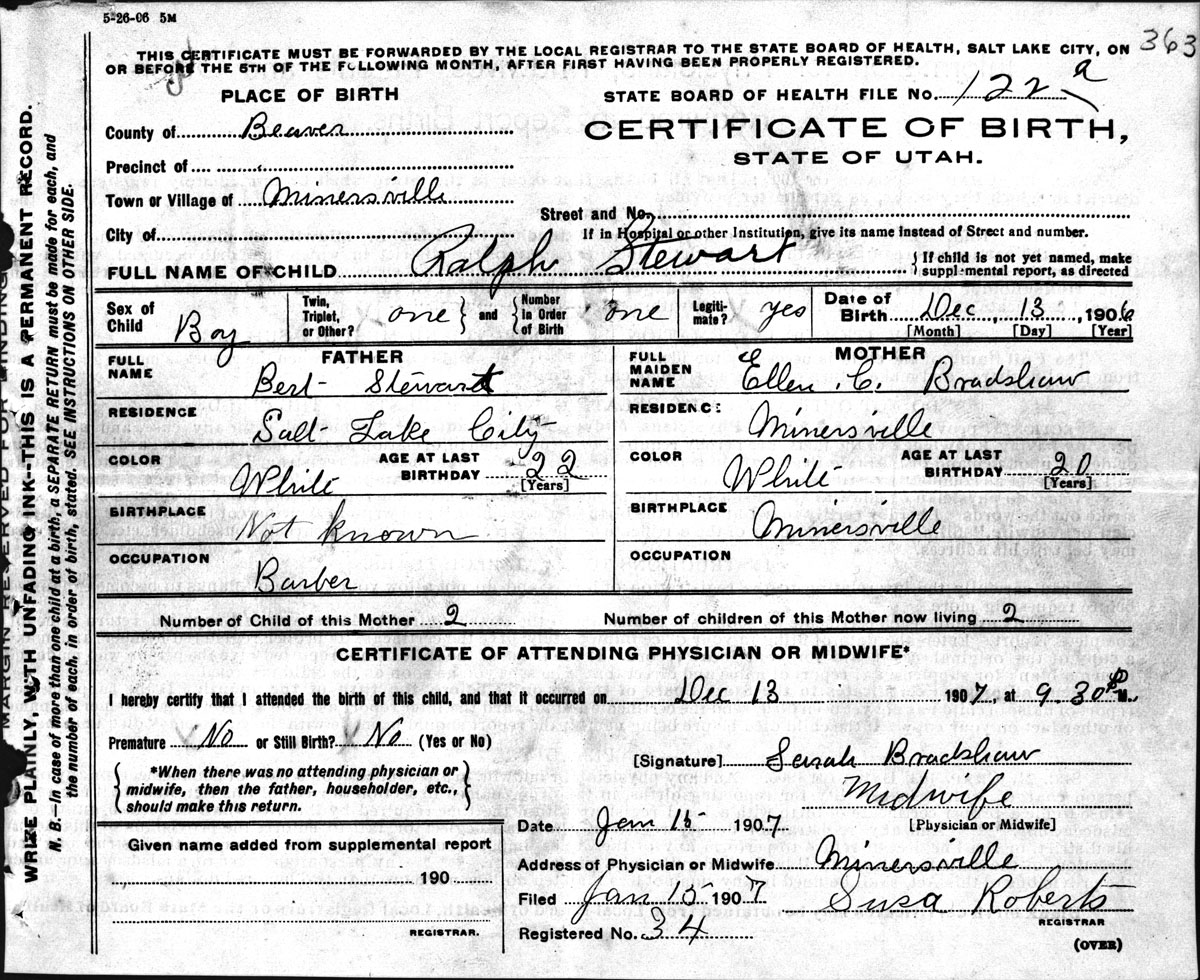 5-26-06 5M
363
THIS CERTIFICATE MUST BE FORWARDED BY THE LOCAL REGISTRAR TO THE STATE BOARD OF HEALTH, SALT LAKE CITY, ON
OR BEFORE THE 5TH OF THE FOLLOWING MONTH, AFTER FIRST HAVING BEEN PROPERLY REGISTERED.
PLACE OF BIRTH
STATE BOARD OF HEALTH FILE No. 122 a
County of Beaver
CERTIFICATE OF BIRTH,
STATE OF UTAH.
Precinct of
Town or Village of Minersville
Street and No.
City of
If in Hospital or other Institution, give its name instead of Street and number.
FULL NAME OF CHILD Ralph Stewart
{ If child is not yet named, make
supplemental report, as directed
Sex of Child Boy
Twin, Triplet, or Other? one } and { Number in Order of Birth one
Legitimate? yes
Date of Birth Dec, 13, 1906
[Month] [Day] [Year]
FATHER
FULL NAME Bert Stewart
RESIDENCE Salt Lake City
COLOR White
AGE AT LAST BIRTHDAY 22
[Years]
BIRTHPLACE Not known
OCCUPATION Barber
MOTHER
FULL MAIDEN NAME Ellen C. Bradshaw
RESIDENCE: Minersville
COLOR White
AGE AT LAST BIRTHDAY 20
[Years]
BIRTHPLACE Minersville
OCCUPATION
Number of Child of this Mother 2
Number of children of this Mother now living 2
CERTIFICATE OF ATTENDING PHYSICIAN OR MIDWIFE*
I hereby certify that I attended the birth of this child, and that it occurred on Dec 13 1907, at 9.30 P M.
Premature No or Still Birth? No (Yes or No)
{ *When there was no attending physician or
midwife, then the father, householder, etc.,
should make this return. }
[Signature] Sarah Bradshaw
Midwife
[Physician or Midwife]
Date Jan 15 1907
Given name added from supplemental report
190
REGISTRAR.
Address of Physician or Midwife Minersville
Filed Jan 15 1907 Susa Roberts
REGISTRAR
Registered No. 34
(OVER)
MARGIN RESERVED FOR BINDING
WRITE PLAINLY, WITH UNFADING INK--THIS IS A PERMANENT RECORD.
N. B.—In case of more than one child at a birth, a SEPARATE RETURN must be made for each, and
the number of each, in order of birth, stated. SEE INSTRUCTIONS ON OTHER SIDE.